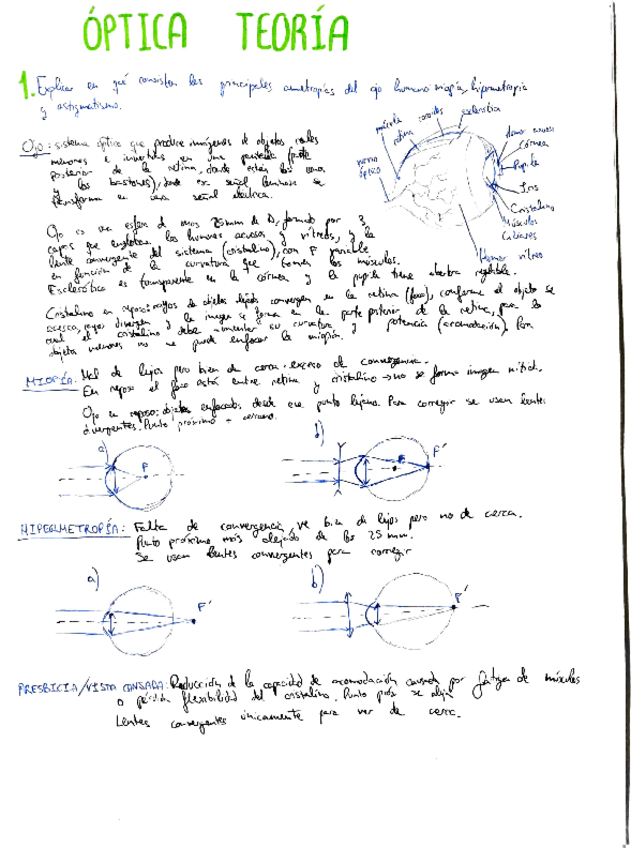 ÓPTICA TEORÍA
1. Explicar en qué consisten las principales ametropías del ojo humano miopía, hipermetropía
y astigmatismo.
Ojo: sistema óptico que produce imágenes de objetos reales
menores e invertidas en una pantalla (parte
posterior de la retina, donde están los conos
y los bastones), donde esa señal luminosa se
transforma en una señal eléctrica.
músculo
retina
coroides
esclerótica
nervio
óptico
Humor acuoso
Córnea
Pupila
Iris
Cristalino
Músculos
Ciliares
Humor vítreo
Ojo es una esfera de unos 25mm de D, formado por 3
capas que engloban los humores acuosos y vítreos, y la
lente convergente del sistema (cristalino), con F variable
en función de la curvatura que tomen los músculos.
Esclerótica es transparente en la córnea y la pupila tiene abertura regulable.
Cristalino en reposo: rayos de objetos lejos convergen en la retina (foco), conforme el objeto se
acerca, rayos divergen y la imagen se forma en la parte posterior de la retina, para lo
cual el cristalino debe aumentar su curvatura y potencia (acomodación). Para
objetos menores no se puede enfocar la
MIOPÍA: Mal de lejos pero bien de cerca. exceso de convergencia.
En reposo el foco está entre retina y cristalino → no se forma imagen nítida.
Ojo en reposo: objetos enfocados desde ese punto lejano. Para corregir se usan lentes
divergentes. Punto próximo + cercano.
a)
F
b)
F'
HIPERMETROPÍA: Falta de convergencia, ve bien de lejos pero no de cerca.
Punto próximo más alejado de los 25 mm.
Se usan lentes convergentes para corregir
a)
F'
b)
F'
PRESBICIA/VISTA CANSADA: Reducción de la capacidad de acomodación causada por fatiga de músculos
o pérdida flexibilidad del cristalino. Punto próx se aleja
Lentes convergentes únicamente para ver de cerca.